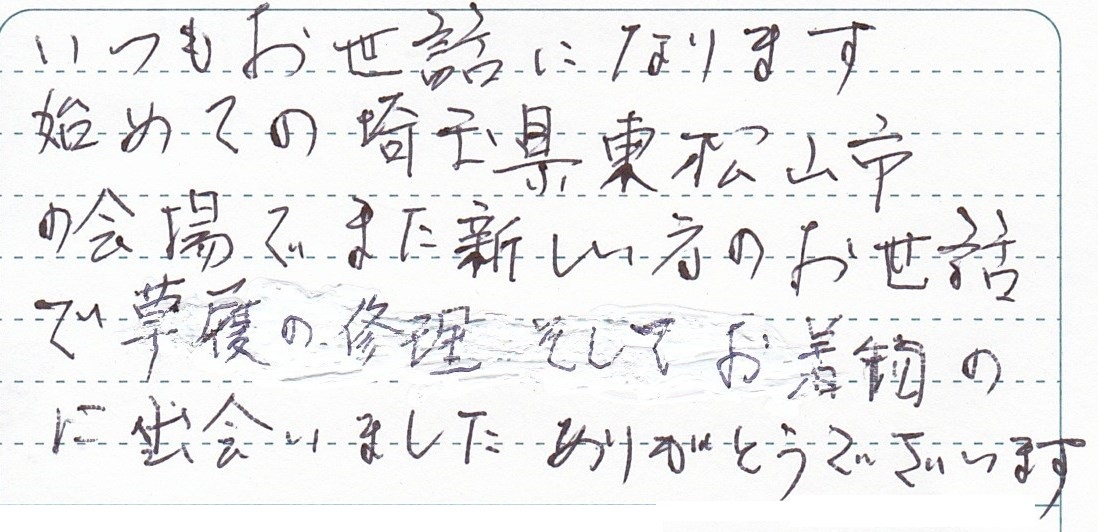 いつもお世話になります
始めての埼玉県東松山市
の会場でまた新しい方のお世話
で草履の修理そしてお着物の
に出会いました ありがとうございます